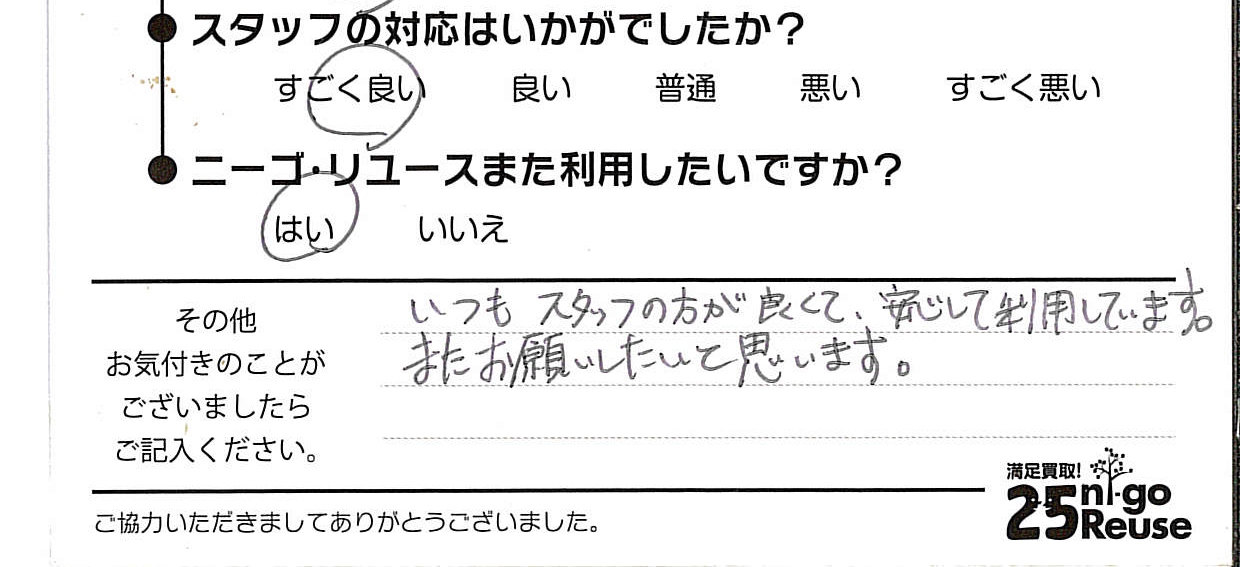 スタッフの対応はいかがでしたか?
すごく良い 良い 普通 悪い すごく悪い
ニーゴ・リユースまた利用したいですか?
はい いいえ
その他
お気付きのことが
ございましたら
ご記入ください。
いつも スタッフの方が 良くて、安心して利用しています。
またお願いしたいと思います。
満足買取!
25 ni-go
Reuse
ご協力いただきましてありがとうございました。